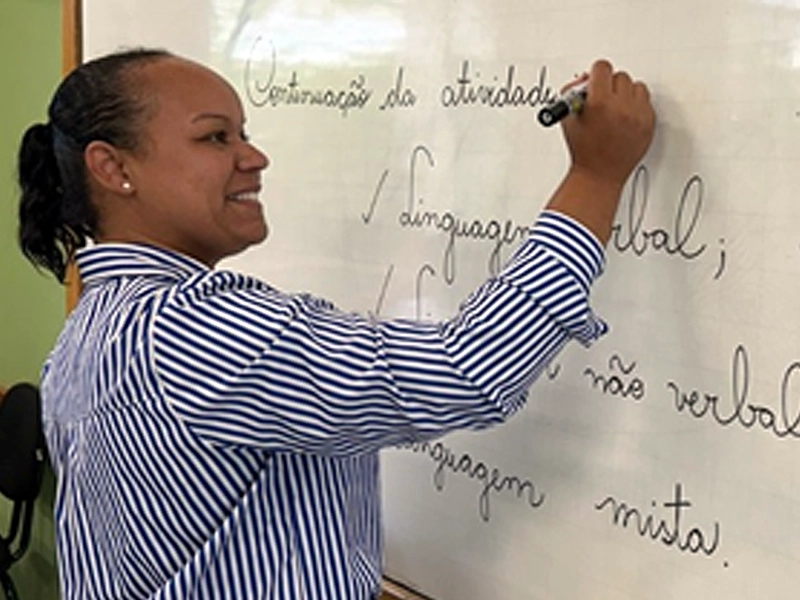 Continuação da atividade
✓ Linguagem verbal;
não verbal
linguagem mista.